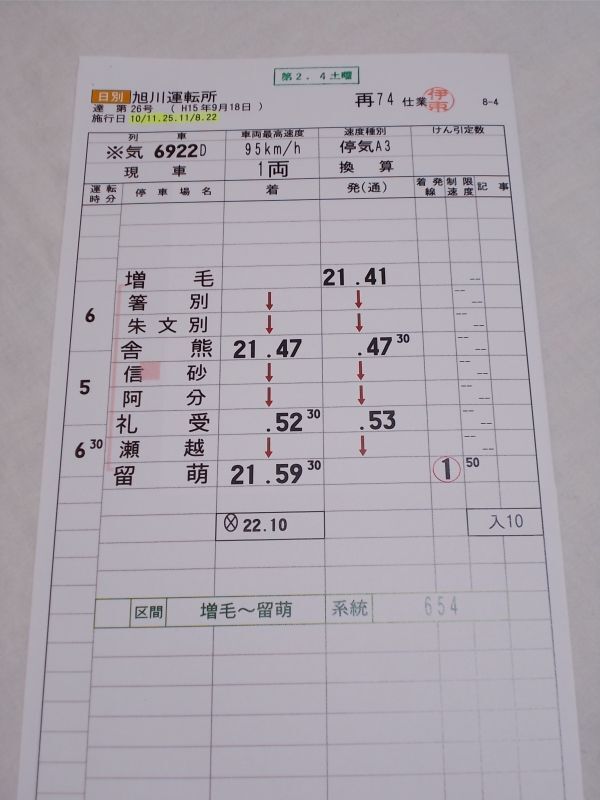 第2．4土曜
日別 旭川運転所 再74 仕業 伊東 8-4
達 第26号 ( H15年9月18日 )
施行日 10/11.25.11/8.22
列車 車両最高速度 速度種別 けん引定数
※気 6922D 95km/h 停気A3
現車 1両 換算
運転時分 停車場名 着 発(通) 着発線 制限速度 記事
増毛 21.41
6 箸別 ↓ ↓
朱文別 ↓ ↓
舎熊 21.47 .47 30
5 信砂 ↓ ↓
阿分 ↓ ↓
礼受 .52 30 .53
6 30 瀬越 ↓ ↓
留萌 21.59 30 1 50
Ⓧ 22.10 入10
区間 増毛～留萌 系統 654